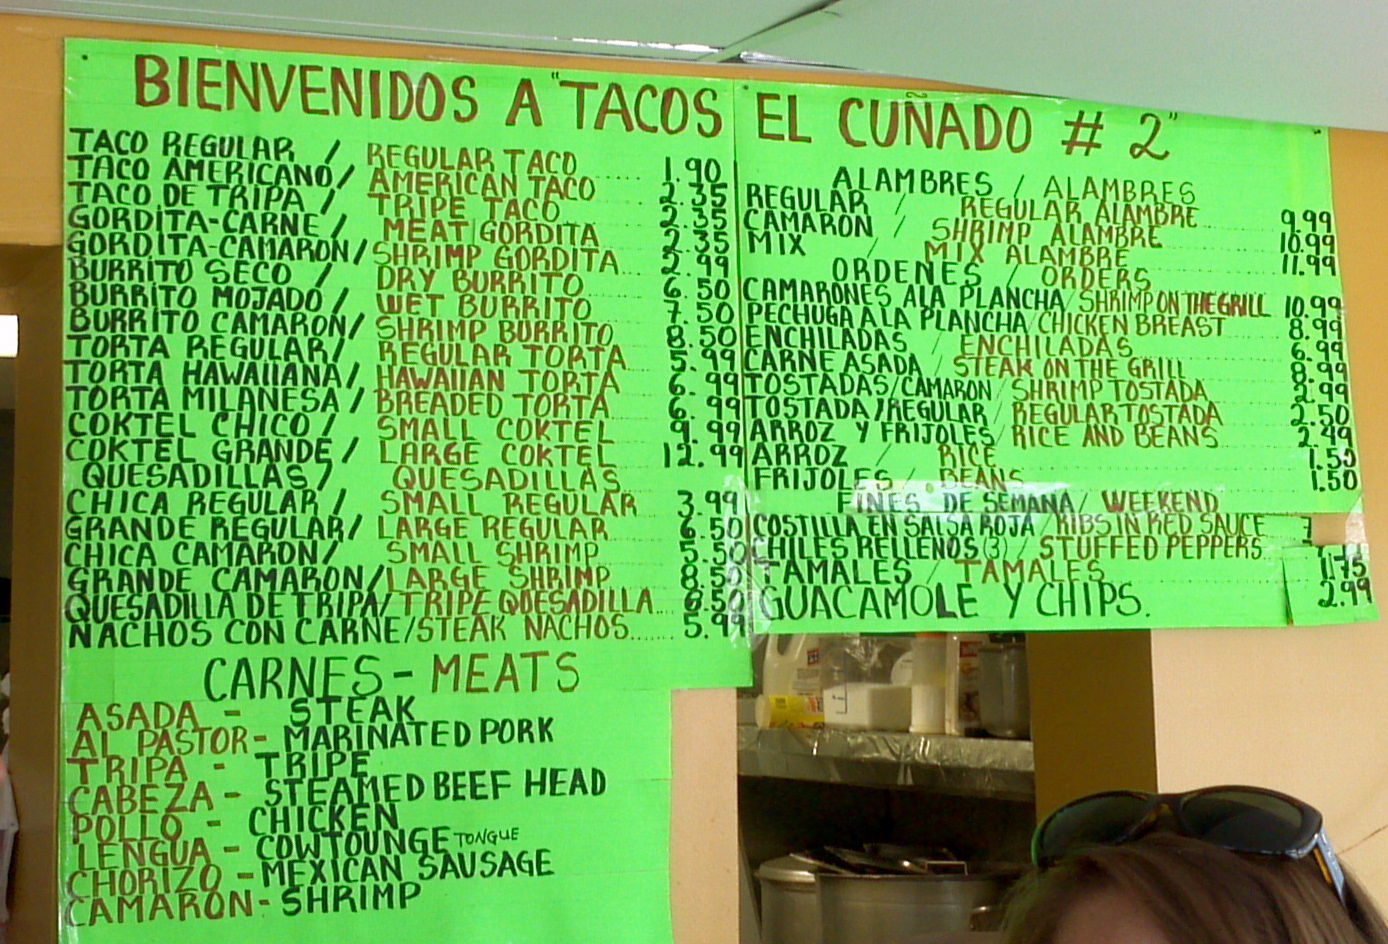 BIENVENIDOS A "TACOS EL CUÑADO # 2"
TACO REGULAR / REGULAR TACO 1.90
TACO AMERICANO / AMERICAN TACO 2.35
TACO DE TRIPA / TRIPE TACO 2.35
GORDITA-CARNE / MEAT GORDITA 2.35
GORDITA-CAMARON / SHRIMP GORDITA 2.99
BURRITO SECO / DRY BURRITO 6.50
BURRITO MOJADO / WET BURRITO 7.50
BURRITO CAMARON / SHRIMP BURRITO 8.50
TORTA REGULAR / REGULAR TORTA 5.99
TORTA HAWAIIANA / HAWAIIAN TORTA 6.99
TORTA MILANESA / BREADED TORTA 6.99
COKTEL CHICO / SMALL COKTEL 9.99
COKTEL GRANDE / LARGE COKTEL 12.99
QUESADILLAS / QUESADILLAS
CHICA REGULAR / SMALL REGULAR 3.99
GRANDE REGULAR / LARGE REGULAR 6.50
CHICA CAMARON / SMALL SHRIMP 5.50
GRANDE CAMARON / LARGE SHRIMP 8.50
QUESADILLA DE TRIPA / TRIPE QUESADILLA 6.50
NACHOS CON CARNE / STEAK NACHOS 5.99
CARNES - MEATS
ASADA - STEAK
AL PASTOR - MARINATED PORK
TRIPA - TRIPE
CABEZA - STEAMED BEEF HEAD
POLLO - CHICKEN
LENGUA - COW TOUNGE TONGUE
CHORIZO - MEXICAN SAUSAGE
CAMARON - SHRIMP
ALAMBRES / ALAMBRES
REGULAR / REGULAR ALAMBRE 9.99
CAMARON / SHRIMP ALAMBRE 10.99
MIX / MIX ALAMBRE 11.99
ORDENES / ORDERS
CAMARONES ALA PLANCHA / SHRIMP ON THE GRILL 10.99
PECHUGA ALA PLANCHA / CHICKEN BREAST 8.99
ENCHILADAS / ENCHILADAS 6.99
CARNE ASADA / STEAK ON THE GRILL 8.99
TOSTADAS/CAMARON / SHRIMP TOSTADA 2.99
TOSTADA/REGULAR / REGULAR TOSTADA 2.50
ARROZ Y FRIJOLES / RICE AND BEANS 2.49
ARROZ / RICE 1.50
FRIJOLES / BEANS 1.50
FINES DE SEMANA / WEEKEND
COSTILLA EN SALSA ROJA / RIBS IN RED SAUCE
CHILES RELLENOS (3) / STUFFED PEPPERS
TAMALES / TAMALES 1.75
GUACAMOLE Y CHIPS. 2.99